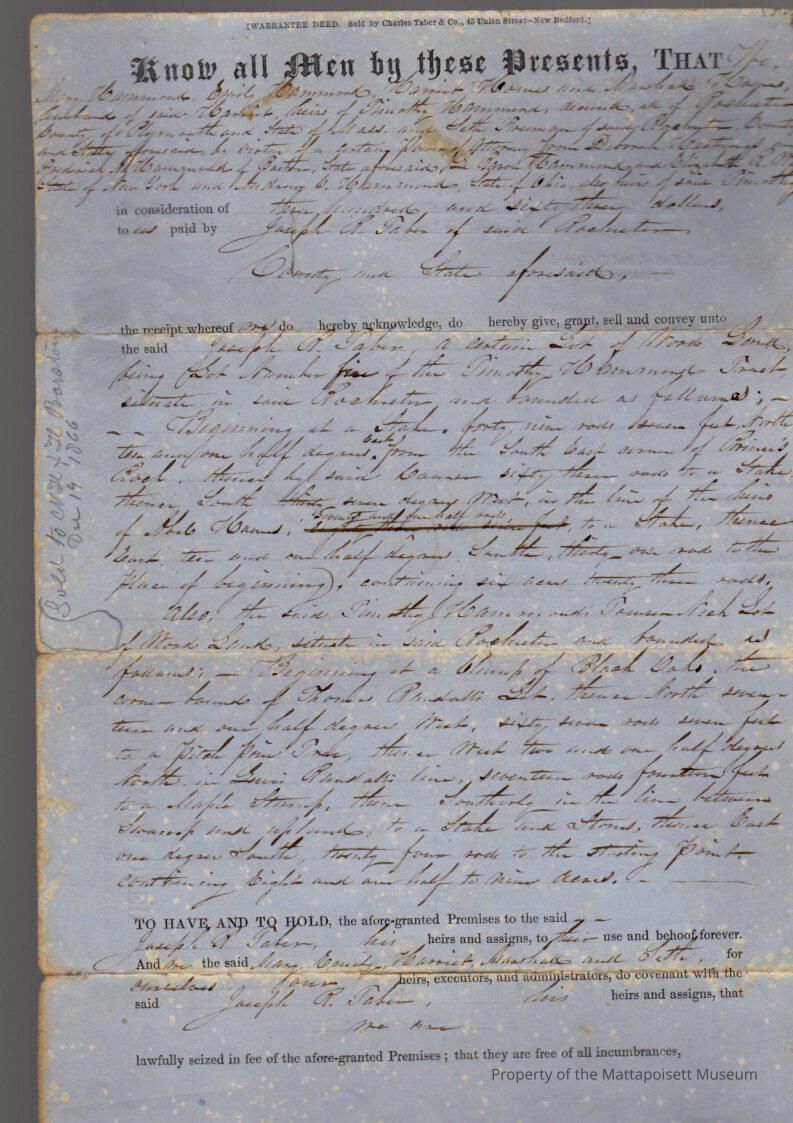 [WARRANTEE DEED. Sold by Charles Taber & Co., 45 Union Street—New Bedford.]
Know all Men by these Presents, THAT We,
Mary Hammond, Emily Hammond, Harriet Haines and Marshall Haines,
husband of said Harriet, heirs of Timothy Hammond, deceased, all of Rochester
County of Plymouth and State of Mass. and Seth Freeman of said Rochester County
and State aforesaid, by virtue of a certain power of Attorney from Deborah
Frederick M. Hammond of State aforesaid, Hammond and Elizabeth R.
State of New York and Andrew C. Hammond, State of Ohio, also heirs of said Timothy
in consideration of three hundred and sixty three dollars,
to us paid by Joseph R. Taber of said Rochester
County and State aforesaid,
the receipt whereof we do hereby acknowledge, do hereby give, grant, sell and convey unto
the said Joseph R. Taber, a certain Lot of Wood Land,
being Lot Number five of the Timothy Hammond Tract,
situate in said Rochester and bounded as follows; –
– – Beginning at a Stake, forty nine rods seven feet North
ten and one half degrees East from the South East corner of
thence by said Corner sixty three rods to a Stake
thence South seven degrees West, in the line of the heirs
of Haines, Twenty and one half rods, to a Stake, thence
East ten and one half degrees South, thirty one rods to the
place of beginning, containing six acres twenty three rods,
Also, the said Timothy Hammond's Towser Neck Lot
of Wood Land, situate in said Rochester and bounded as
follows; – Beginning at a Clump of Black Oaks, the
corner bounds of Thomas Randall's Lot, thence North seven-
teen and one half degrees West, sixty seven rods seven feet
to a Pitch pine Tree, thence West two and one half degrees
North, in Lewis Randall's line, seventeen rods fourteen feet
to a Maple Stump, thence Southerly in the line between
Swamp and upland, to a Stake and Stones, thence East
one degree South, twenty four rods to the starting Point.
containing Eight and one half to nine Acres. –
TO HAVE AND TO HOLD, the afore-granted Premises to the said
Joseph R. Taber, his heirs and assigns, to their use and behoof forever.
And we the said Mary, Emily, Harriet, Marshall and Seth, for
ourselves our heirs, executors, and administrators, do covenant with the
said Joseph R. Taber, his heirs and assigns, that
we are
lawfully seized in fee of the afore-granted Premises; that they are free of all incumbrances,
Sold to & H Barstow
Dec 19 1866
Property of the Mattapoisett Museum